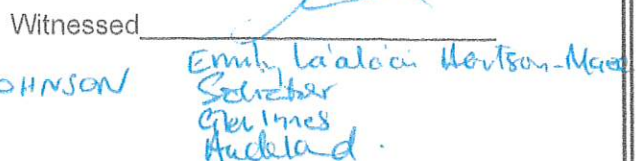 Witnessed
OHNSON Emily La'aloi
Solicitor
Glen Innes
Auckland.